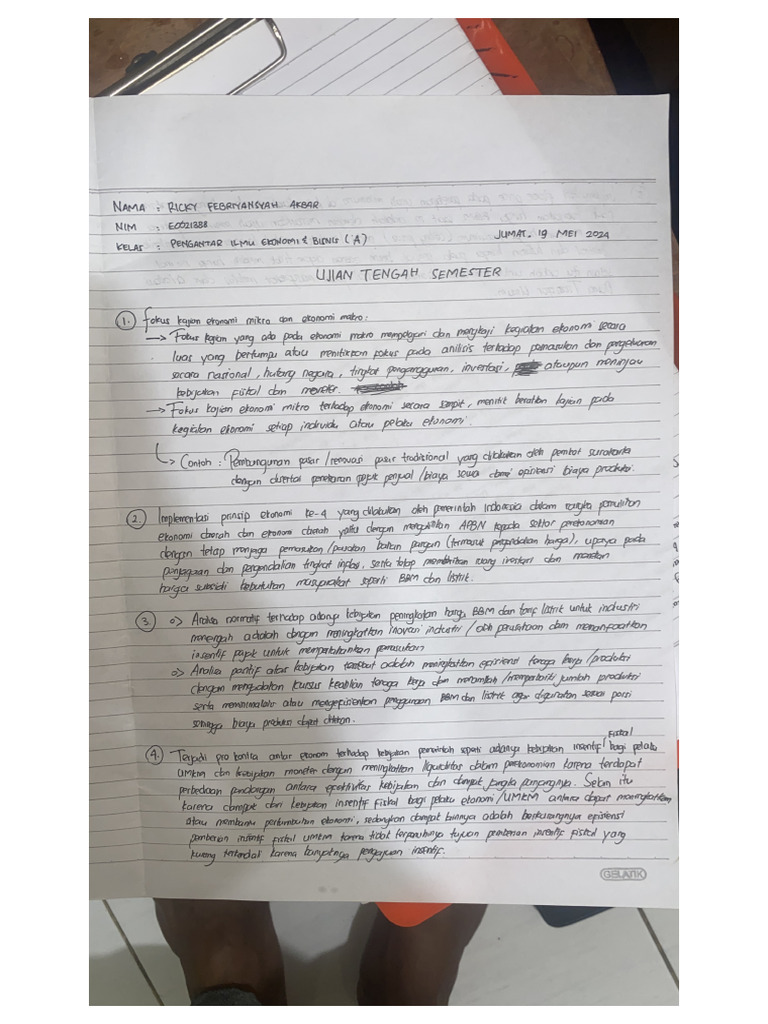 NAMA : RICKY FEBRIYANSYAH AKBAR
NIM : E0021388
KELAS : PENGANTAR ILMU EKONOMI & BISNIS ('A)
JUMAT, 19 MEI 2024
UJIAN TENGAH SEMESTER
1. Fokus kajian ekonomi mikro dan ekonomi makro :
→ Fokus kajian yang ada pada ekonomi makro mempelajari dan mengkaji kegiatan ekonomi secara
luas yang bertumpu atau menitikkan fokus pada analisis terhadap pemasukan dan pengeluaran
secara nasional, hutang negara, tingkat pengangguran, investasi, ataupun meninjau
kebijakan fiskal dan moneter.
→ Fokus kajian ekonomi mikro terhadap ekonomi secara sempit, menitik beratkan kajian pada
kegiatan ekonomi setiap individu atau pelaku ekonomi.
↳ Contoh : Pembangunan pasar /renovasi pasar tradisional yang dilakukan oleh pemkot surakarta
dengan disertai penetapan pajak penjual /biaya sewa demi efisiensi biaya produksi.
2. Implementasi prinsip ekonomi ke-4 yang dilakukan oleh pemerintah Indonesia dalam rangka pemulihan
ekonomi daerah dan ekonomi daerah yaitu dengan mengalihkan APBN kepada sektor perekonomian
dengan tetap menjaga pemasukan/pasokan bahan pangan (termasuk pengendalian harga), upaya pada
penjagaan dan pengendalian tingkat inflasi, serta tetap memberikan ruang investasi dan
harga subsidi kebutuhan masyarakat seperti BBM dan listrik.
3. o> Analisa normatif terhadap adanya kebijakan peningkatan harga BBM dan tarif listrik untuk industri
menengah adalah dengan meningkatkan inovasi industri / oleh perusahaan dan memanfaatkan
insentif pajak untuk mempertahankan pemasukan
o> Analisa positif atas kebijakan tersebut adalah meningkatkan efisiensi tenaga kerja /produksi
dengan mengadakan kursus keahlian tenaga kerja dan jumlah produksi
serta meminimalisir atau mengefisienkan penggunaan BBM dan listrik agar digunakan sesuai porsi
sehingga biaya produksi dapat ditekan.
4. Terjadi pro kontra antar ekonom terhadap kebijakan pemerintah seperti adanya kebijakan insentif Fiskal bagi pelaku
UMKM dan kebijakan moneter dengan meningkatkan liquiditas dalam perekonomian karena terdapat
perbedaan pandangan antara efektivitas kebijakan dan dampak jangka panjangnya. Selain itu
karena dampak dari kebijakan insentif fiskal bagi pelaku ekonomi/UMKM antara dapat meningkatkan
atau membantu pertumbuhan ekonomi, sedangkan dampak buruknya adalah berkurangnya efisiensi
pemberian insentif fiskal UMKM karena tidak terpenuhinya tujuan pemberian insentif fiskal yang
kurang terkendali karena banyaknya pengajuan insentif.
GELATIK